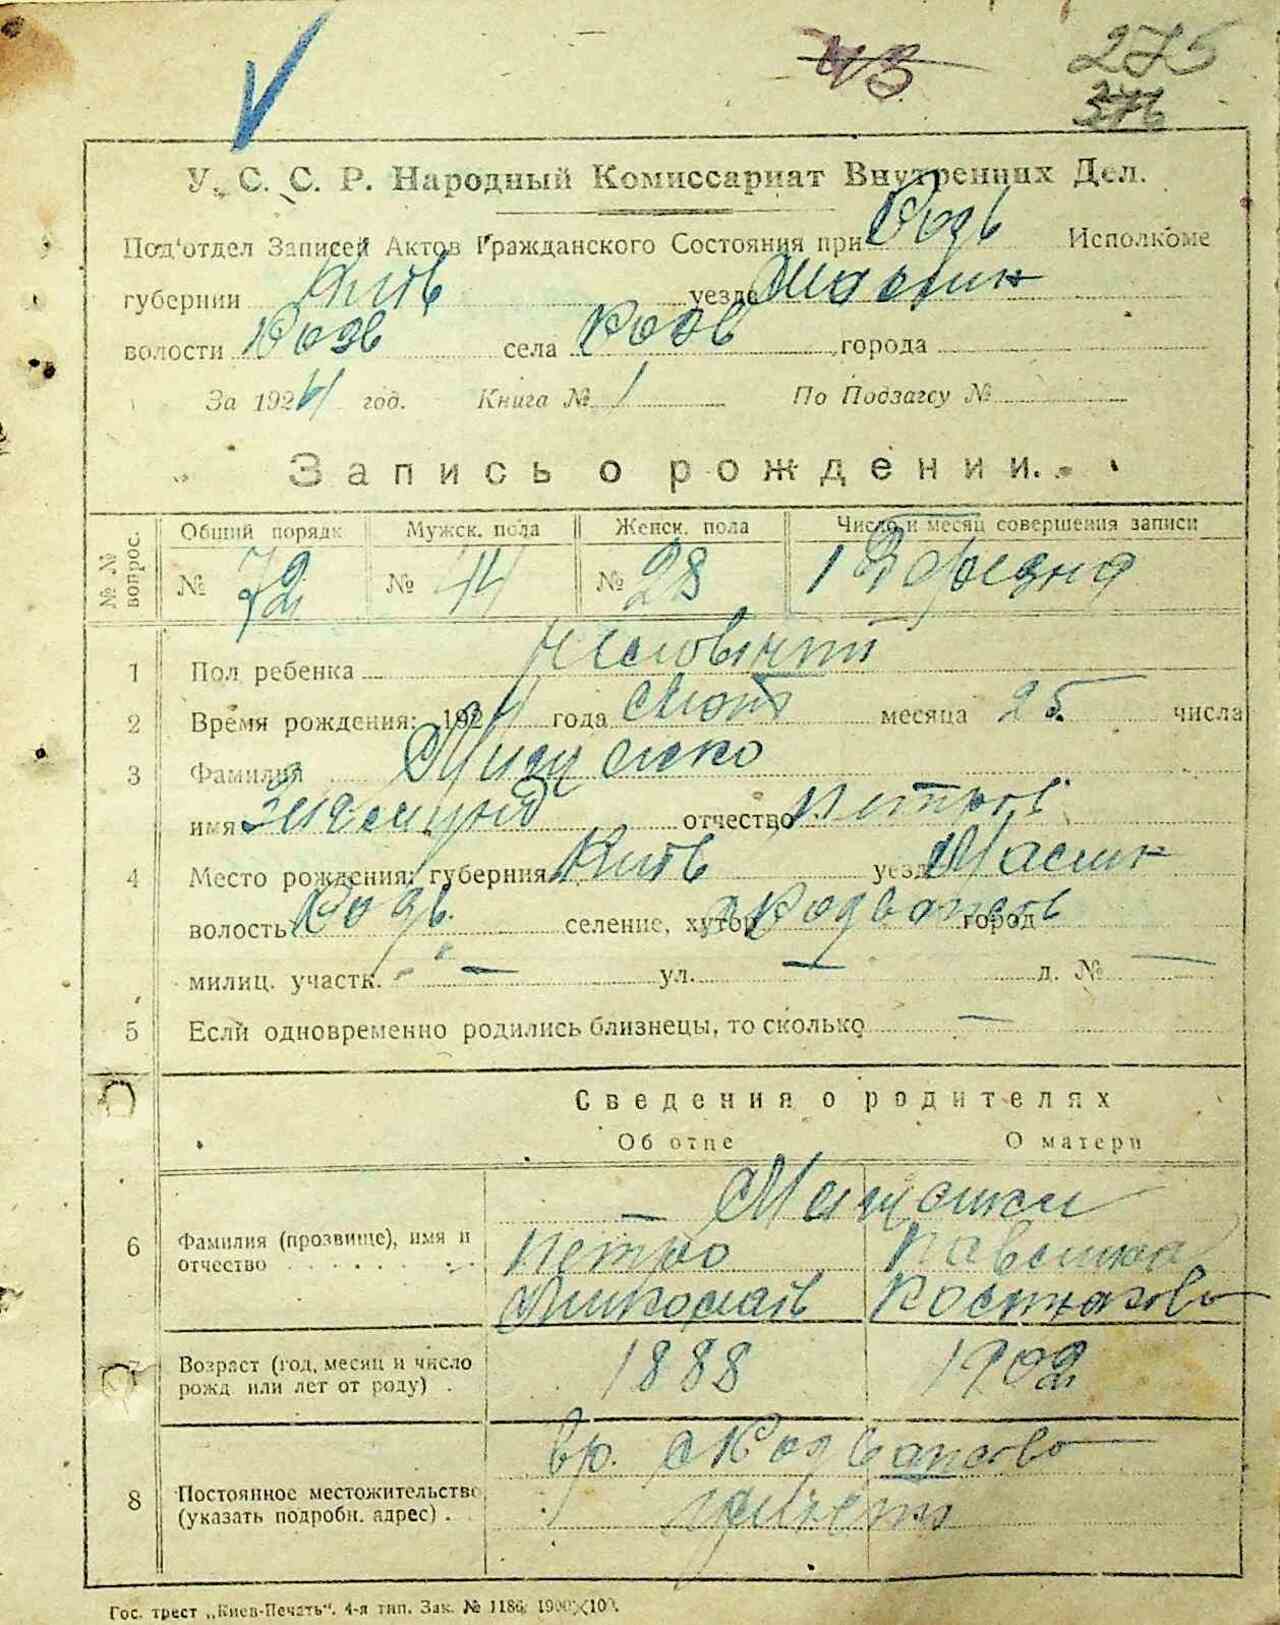 275
У. С. С. Р. Народный Комиссариат Внутренних Дел.
Под'отдел Записей Актов Гражданского Состояния при Кодв Исполкоме
губернии Київ уезда
волости Кодв села Кодв города
За 1924 год. Книга № 1 По Подзагсу №
Запись о рождении.
№ № вопрос. Общий порядк Мужск. пола Женск. пола Число и месяц совершения записи
№ 72 № 44 № 28 1 Вересня
1 Пол ребенка Чоловічий
2 Время рождения: 1924 года месяца 25 числа
3 Фамилия
имя отчество Петров
4 Место рождения: губерния Київ уезд
волость Кодв. селение, хутор город
милиц. участк. — ул. — д. № —
5 Если одновременно родились близнецы, то сколько —
Сведения о родителях
Об отце О матери
6 Фамилия (прозвище), имя и отчество
Петро
Миколаїв
7 Возраст (год, месяц и число рожд или лет от роду) . 1888 1902
8 Постоянное местожительство (указать подробн. адрес) .
Гос. трест „Киев-Печать“. 4-я тип. Зак. № 1186